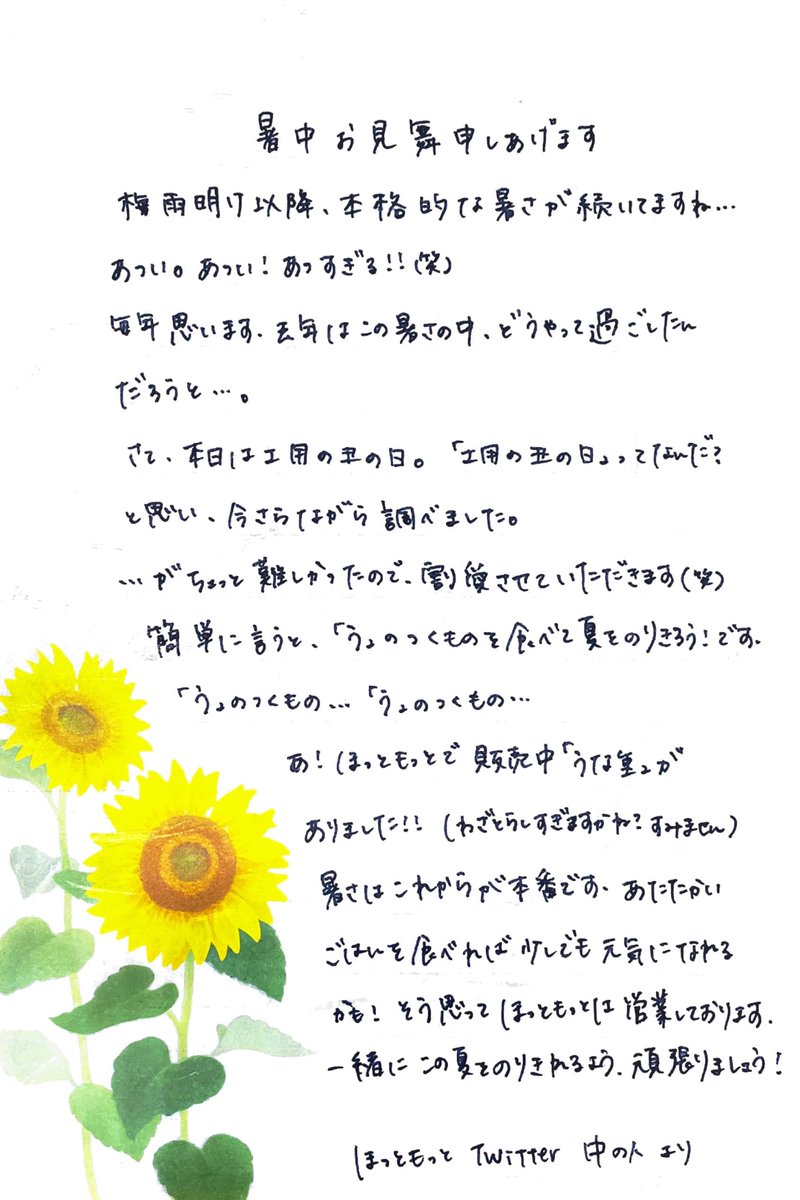 暑中お見舞申しあげます
梅雨明け以降、本格的な暑さが続いてますね…
あつい。あつい！あつすぎる!!(笑)
毎年思います、去年はこの暑さの中、どうやって過ごしたん
だろうと…。
さて、本日は土用の丑の日。「土用の丑の日」ってなんだ？
と思い、今さらながら調べました。
…がちょっと難しかったので、割愛させていただきます(笑)
簡単に言うと、「う」のつくものを食べて夏をのりきろう！です。
「う」のつくもの…「う」のつくもの…
あ！ほっともっとで販売中「うな重」が
ありました!!(わざとらしすぎますかね？すみません)
暑さはこれからが本番です、あたたかい
ごはんを食べれば少しでも元気になれる
かも！そう思ってほっともっとは営業しております、
一緒にこの夏をのりきれるよう、頑張りましょう！
ほっともっと Twitter 中の人 より